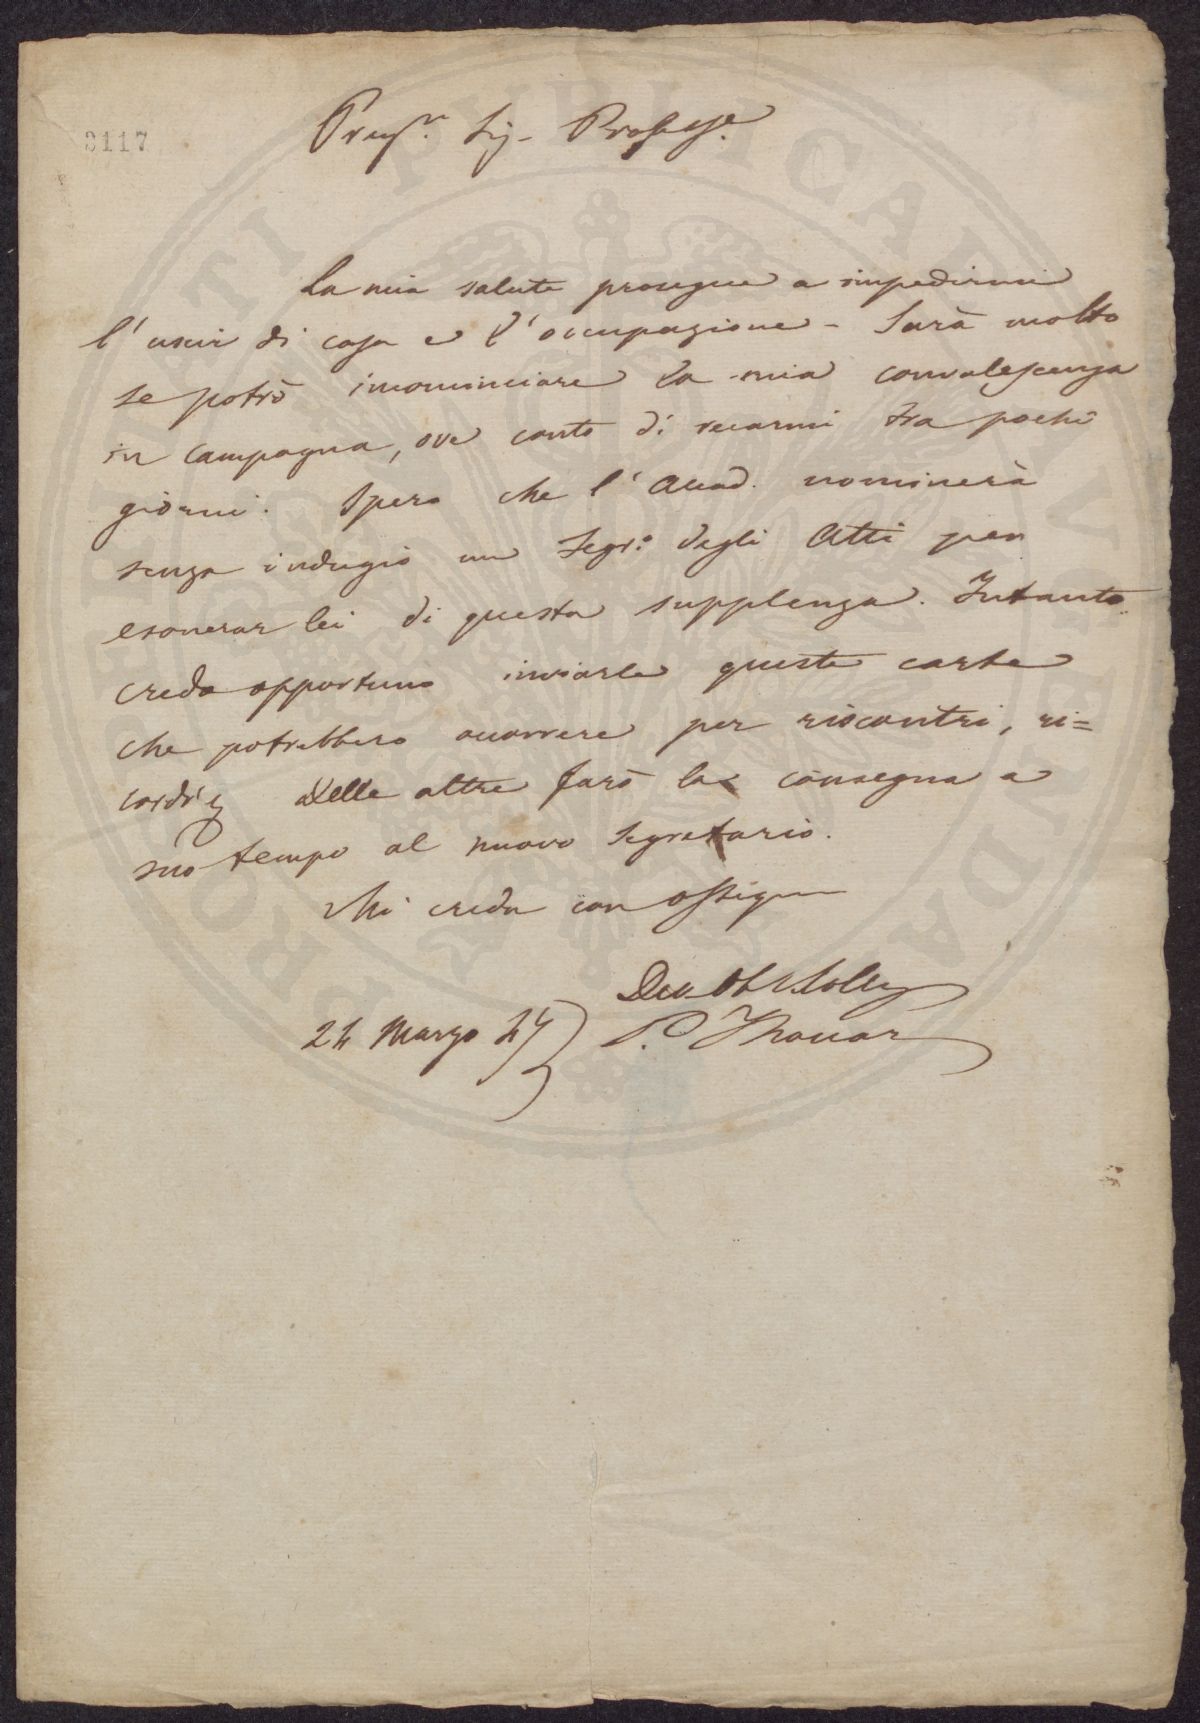 3117
Preg.mo Sig. Profess.e
La mia salute prosegue a impedirmi
l'uscir di casa e l'occupazione - Sarà molto
se potrò incominciare la mia convalescenza
in campagna, ove conto di recarmi tra pochi
giorni. Spero che l'Accad. nominerà
senza indugio un Segr.o degli Atti per
esonerar lei di questa supplenza. Intanto
credo opportuno inviarle queste carte
che potrebbero occorrere per riscontri, ri=
cordi Delle altre farò la consegna a
suo tempo al nuovo Segretario.
Mi creda con ossequio
Dev. Obb. Colleg
24 Marzo 47 P. Thouar
PROBITATI PUBLICAE